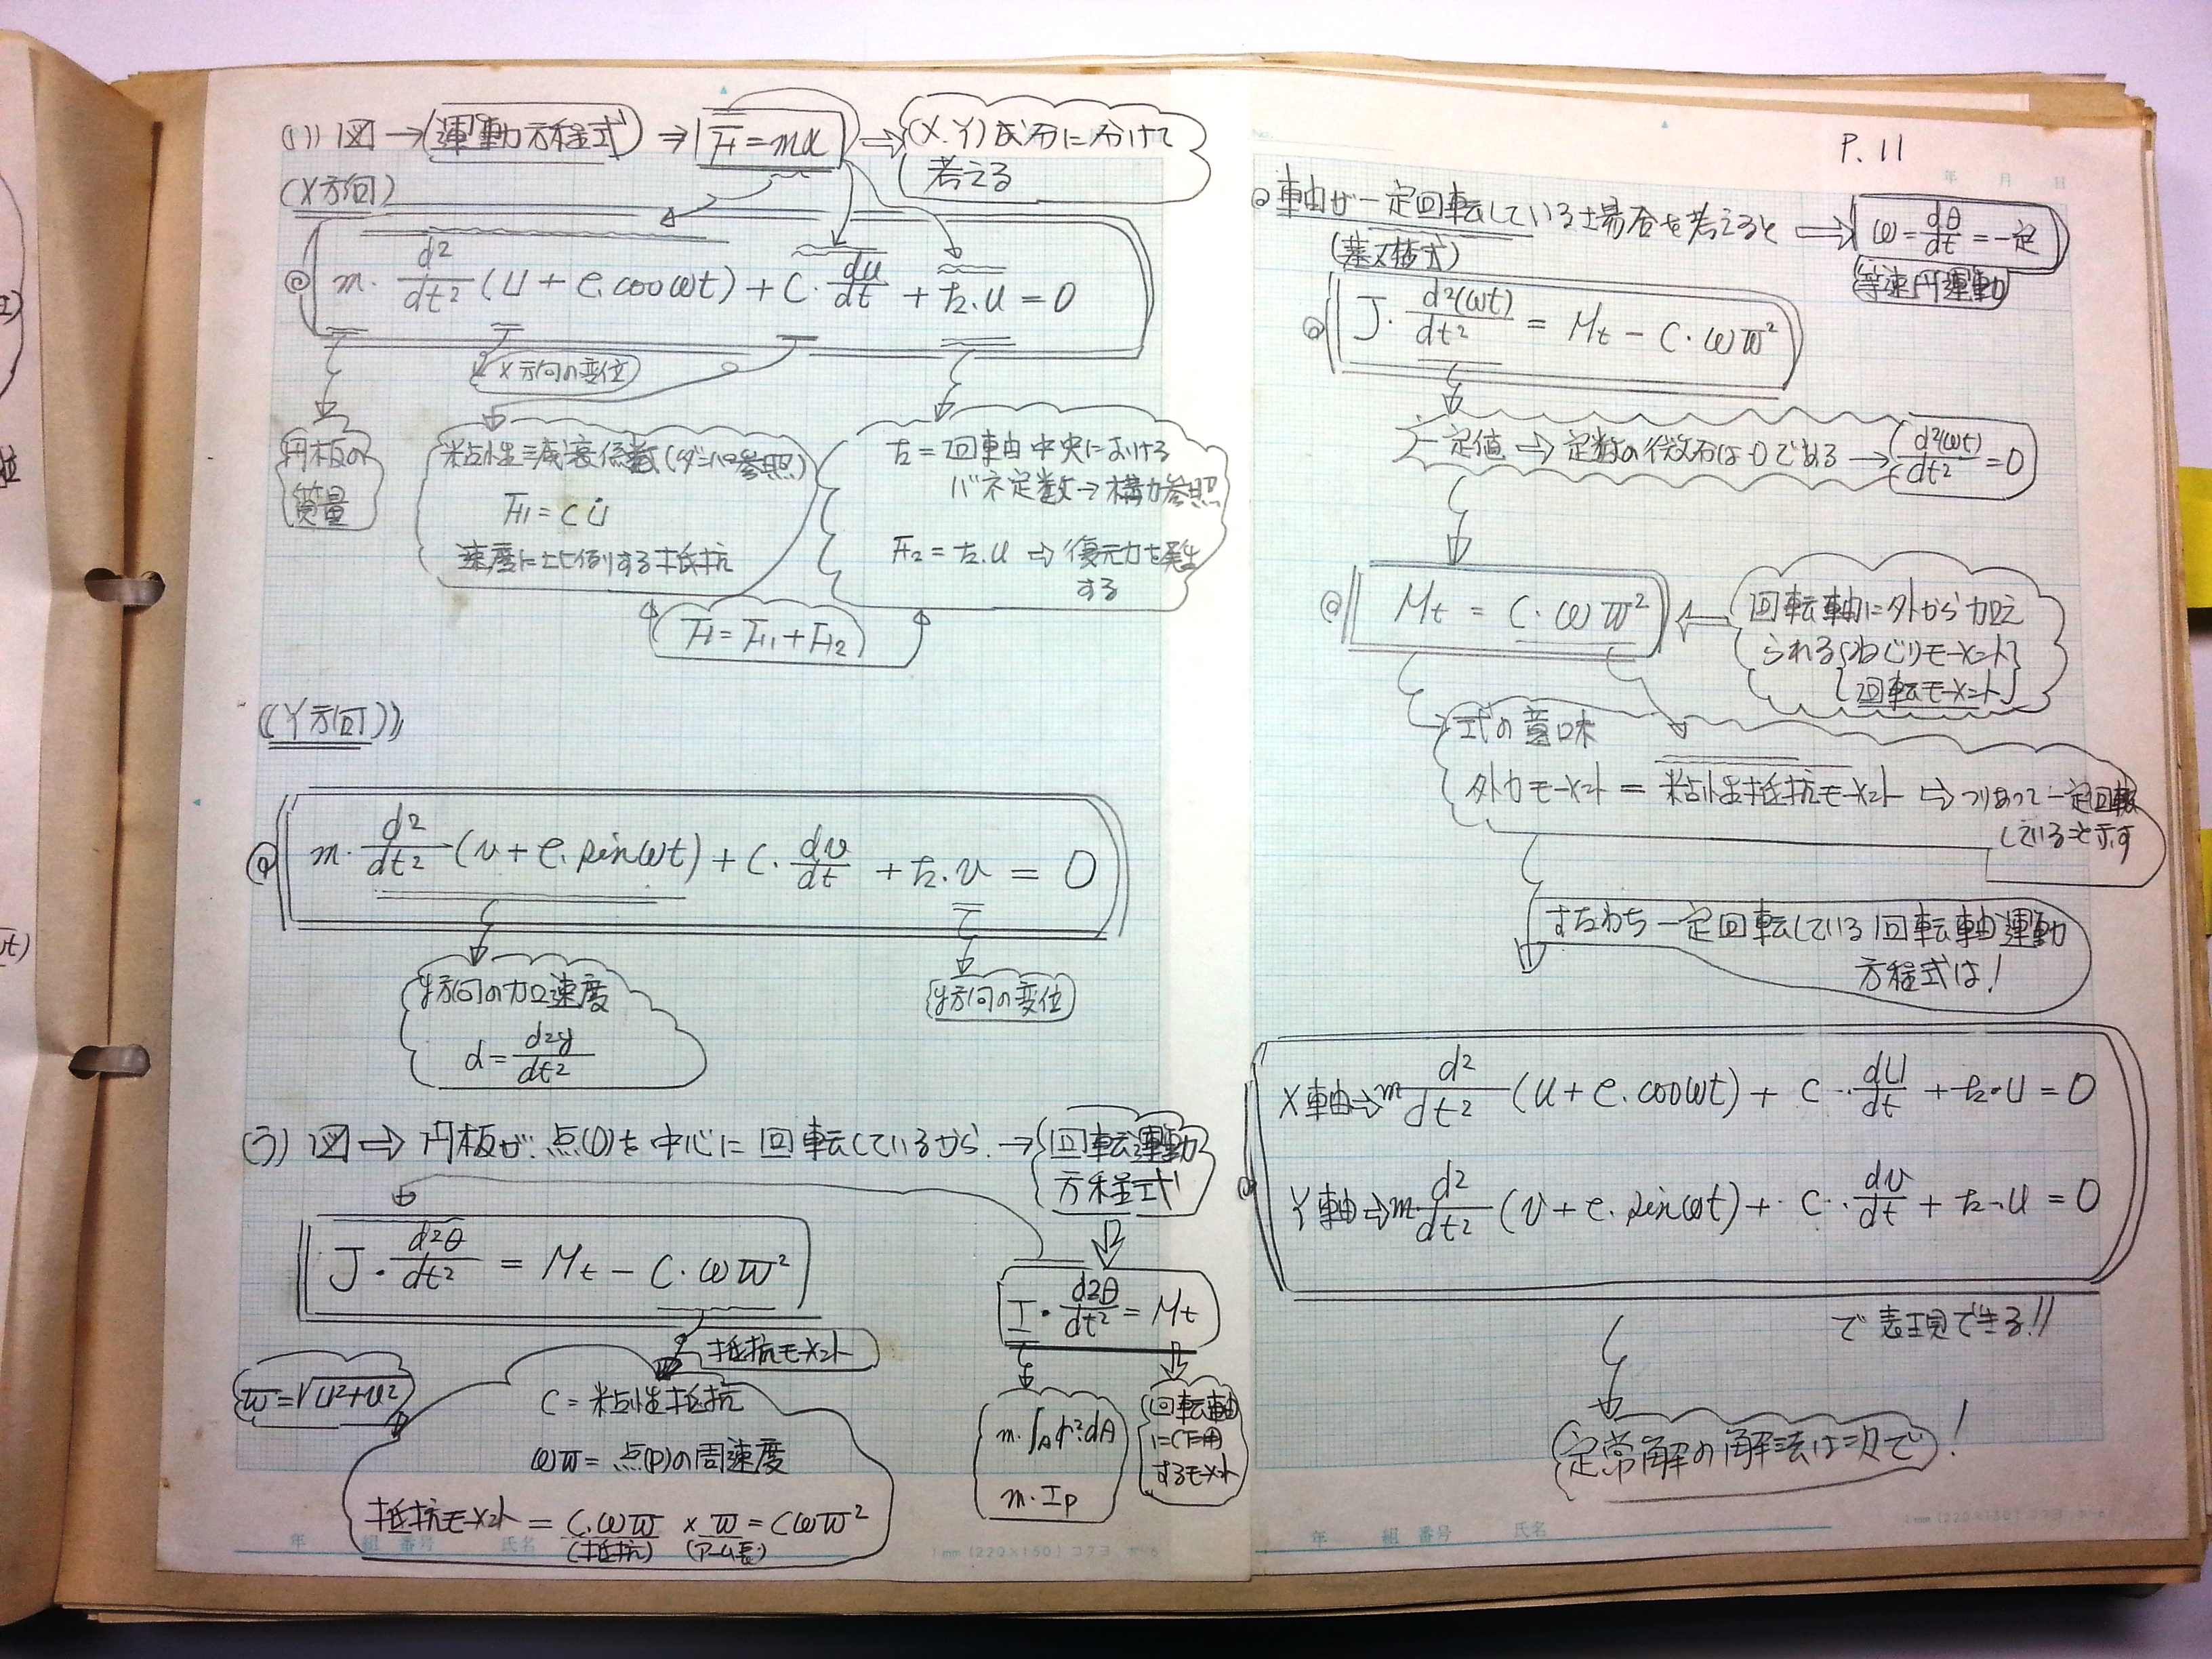 (1)) 図→(運動方程式)⇒ F=mα ⇒ (X.Y)成分に分けて
考える
(X方向)
m・d²/dt²(U+e.cosωt)+C・du/dt+k.u=0
X方向の変位
円板の
質量
粘性減衰係数(ダンパ参照)
F1=cu̇
速度に比例する抵抗
k=回軸中央における
バネ定数→構力参照
F2=k.u⇒復元力を発生
する
F=F1+F2
((Y方向))
m・d²/dt²(v+e.sinωt)+C・dv/dt+k.v=0
y方向の加速度
α=d²y/dt²
y方向の変位
(う) 図⇒円板が.点(O)を中心に回転しているから.→回転運動
方程式
J・d²θ/dt²=Mt-C・ωw̅²
抵抗モーメント
I・d²θ/dt²=Mt
w̅=√u²+v²
C=粘性抵抗
ωw̅=点(P)の周速度
抵抗モーメント=C.ωw̅×w̅=Cωw̅²
(抵抗) (アーム長)
m.∫A r².dA
m.Ip
回転軸
に作用
するモーメント
年 組 番号 氏名
1mm(220×160)コクヨ
P.11
No.
年 月 日
車軸が一定回転している場合を考えると⇒ω=dθ/dt=一定
(基本式)
(等速円運動)
J・d²(ωt)/dt²=Mt-C・ωw̅²
一定値⇒定数の微分は0である→d²(ωt)/dt²=0
Mt=C・ωw̅²
回転軸に外から加え
られる{ねじりモーメント}
{回転モーメント}
式の意味
外力モーメント=粘性抵抗モーメント⇒つりあって一定回転
していることを示す
すなわち一定回転している回転軸運動
方程式は!
X軸⇒m d²/dt²(U+e.cosωt)+C・du/dt+k・U=0
Y軸⇒m・d²/dt²(v+e.sinωt)+C・dv/dt+k・U=0
で表現できる!!
定常解の解法は次で!
年 組 番号 氏名
1mm(220×160)コクヨ